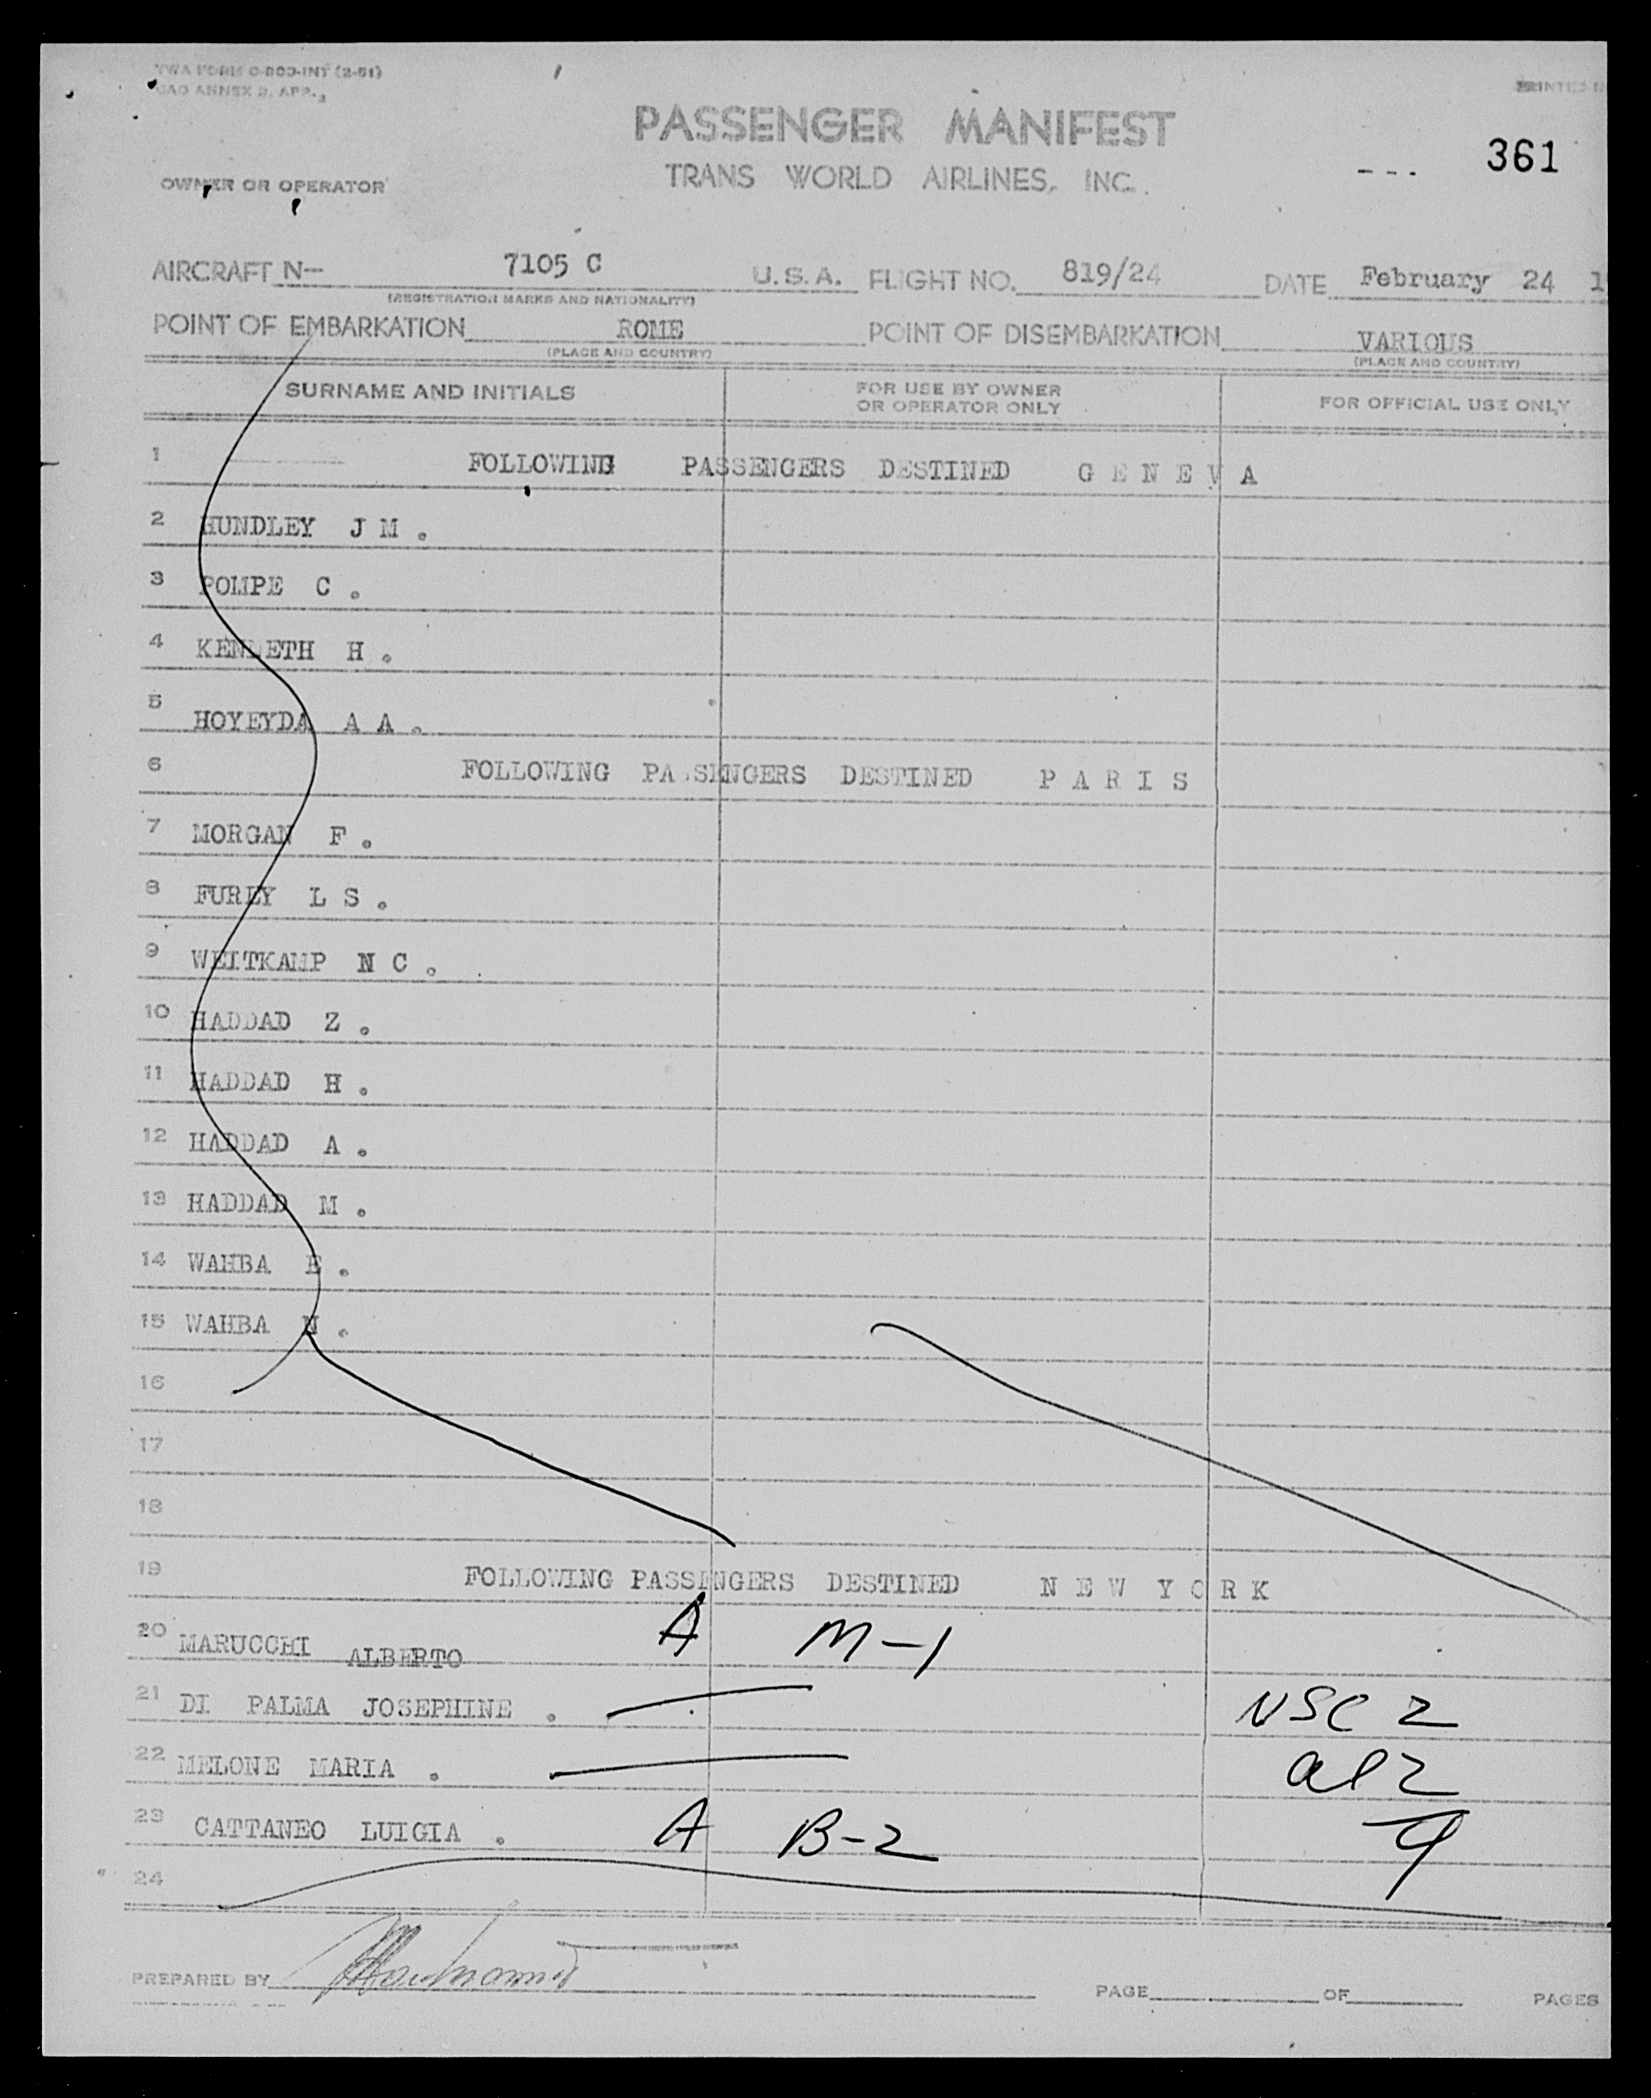 TWA FORM O-800-INT (2-51)
ICAO ANNEX 9, APP. 3
PRINTED
PASSENGER MANIFEST
361
TRANS WORLD AIRLINES, INC.
OWNER OR OPERATOR
AIRCRAFT N— 7105 C U.S.A. FLIGHT NO. 819/24 DATE February 24 1
(REGISTRATION MARKS AND NATIONALITY)
POINT OF EMBARKATION ROME POINT OF DISEMBARKATION VARIOUS
(PLACE AND COUNTRY) (PLACE AND COUNTRY)
SURNAME AND INITIALS FOR USE BY OWNER OR OPERATOR ONLY FOR OFFICIAL USE ONLY
1 FOLLOWING PASSENGERS DESTINED G E N E V A
2 HUNDLEY J M .
3 POMPE C .
4 KENNETH H .
5 HOYEYDA A A .
6 FOLLOWING PASSENGERS DESTINED P A R I S
7 MORGAN F .
8 FURLY L S .
9 WEITKAMP N C .
10 HADDAD Z .
11 HADDAD H .
12 HADDAD A .
13 HADDAD M .
14 WAHBA E .
15 WAHBA N .
16
17
18
19 FOLLOWING PASSENGERS DESTINED N E W Y O R K
20 MARUCCHI ALBERTO A M-1
21 DI PALMA JOSEPHINE . NSC 2
22 MELONE MARIA .
23 CATTANEO LUIGIA . A B-2
24
PREPARED BY PAGE OF PAGES